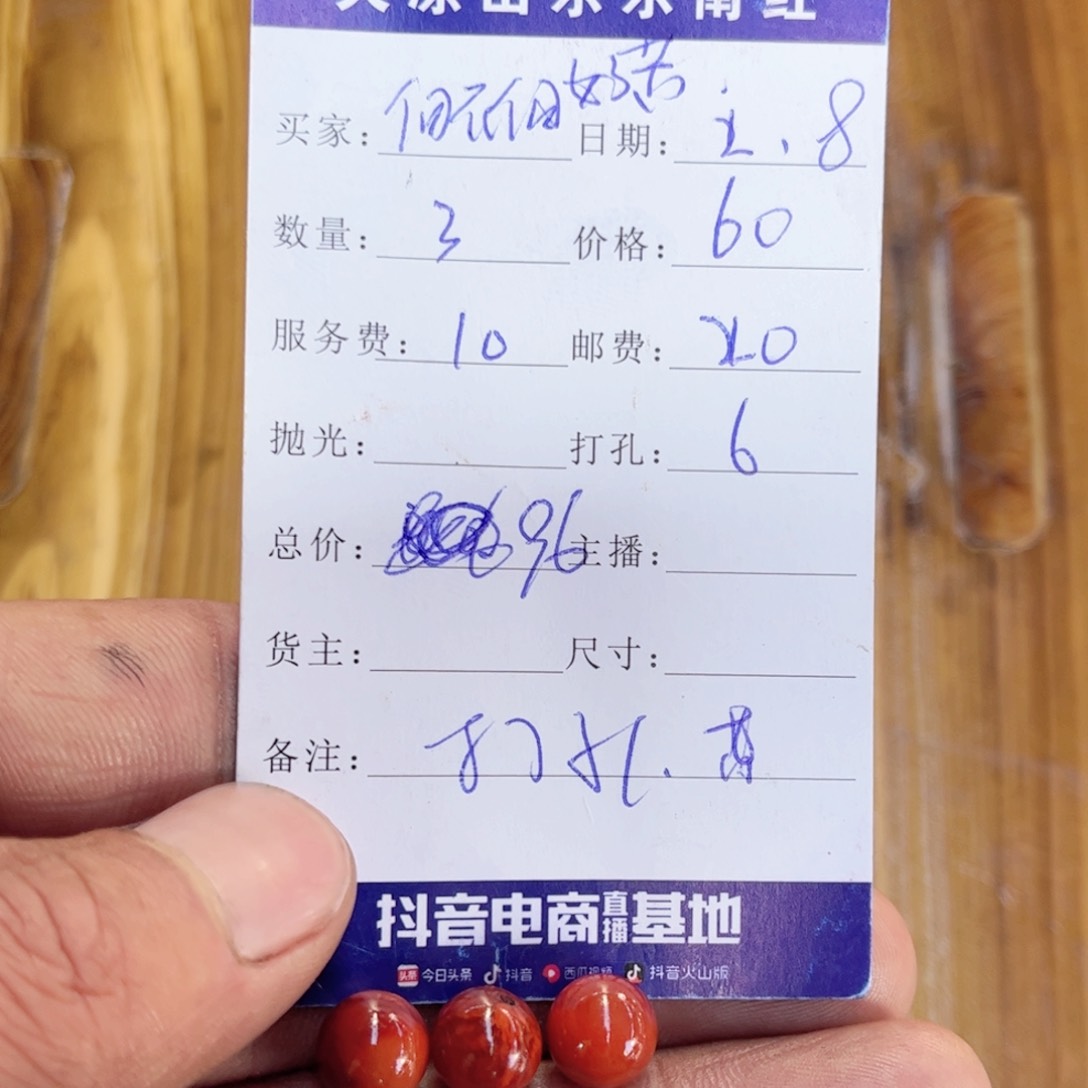 南红
买家: 佰不佰好苦. 日期: 2.8
数量: 3 价格: 60
服务费: 10 邮费: 20
抛光: 打孔: 6
总价: 96 主播:
货主: 尺寸:
备注: 打孔.
抖音电商直播基地
头条 今日头条 抖音 西瓜视频 抖音火山版